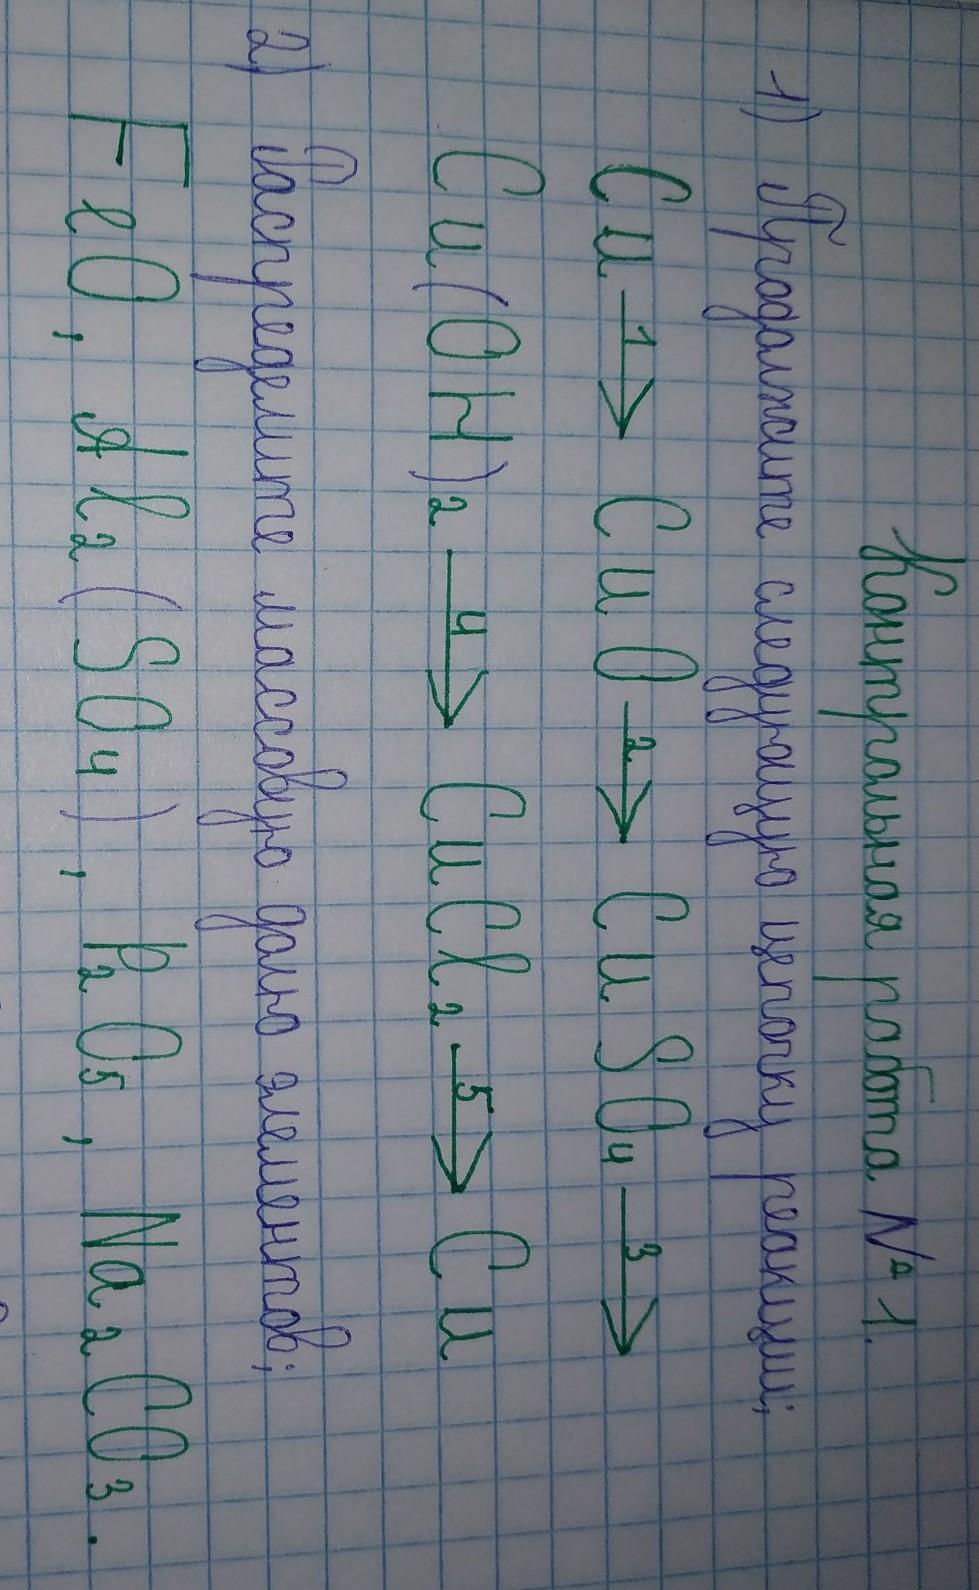 Контрольная работа №1.
1) Продолжите следующую цепочку реакции;
Cu —1→ CuO —2→ CuSO₄ —3→
Cu(OH)₂ —4→ CuCl₂ —5→ Cu
2) Распределите массовую долю элементов;
FeO, Al₂(SO₄), P₂O₅, Na₂CO₃.